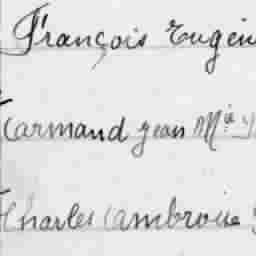 François Eugèn
Carmand Jean Mie
Charles Cambroise